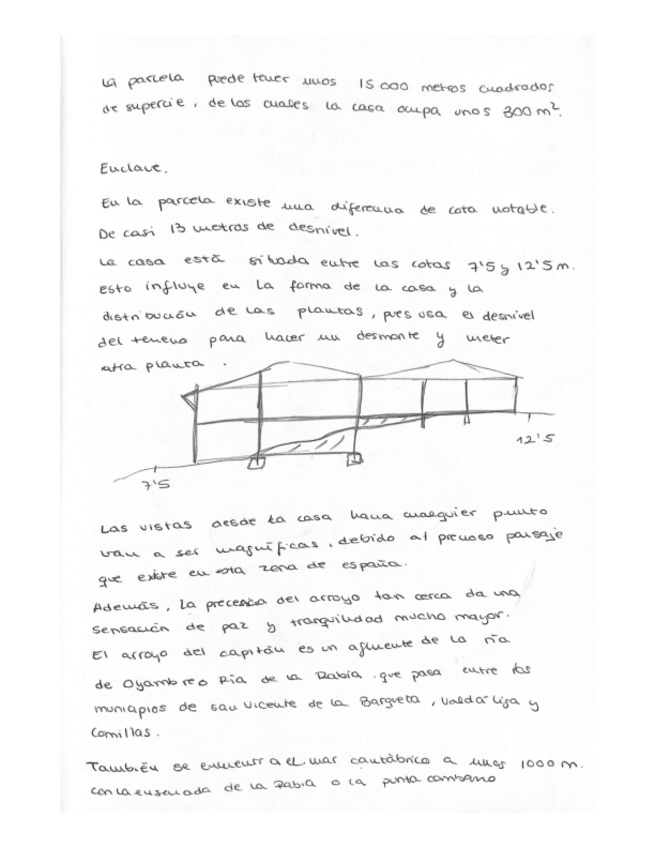 La parcela puede tener unos 15 000 metros cuadrados
de supercie, de los cuales la casa ocupa unos 300 m².
Enclave.
En la parcela existe una diferencia de cota notable.
De casi 13 metros de desnivel.
La casa está situada entre las cotas 7'5 y 12'5 m.
Esto influye en la forma de la casa y la
distribución de las plantas, pues usa el desnivel
del terreno para hacer un desmonte y meter
otra planta.
12'5
7'5
Las vistas desde la casa hacia cualquier punto
van a ser magníficas, debido al precioso paisaje
que existe en esta zona de españa.
Además, la precencia del arroyo tan cerca da una
sensación de paz y tranquilidad mucho mayor.
El arroyo del capitán es un afluente de la ría
de Oyambre o Ría de la Rabia que pasa entre los
municipios de san Vicente de la Barquera, Valdáliga y
Comillas.
También se encuentra el mar cantábrico a unos 1000 m.
con la ensenada de la Rabia o la punta